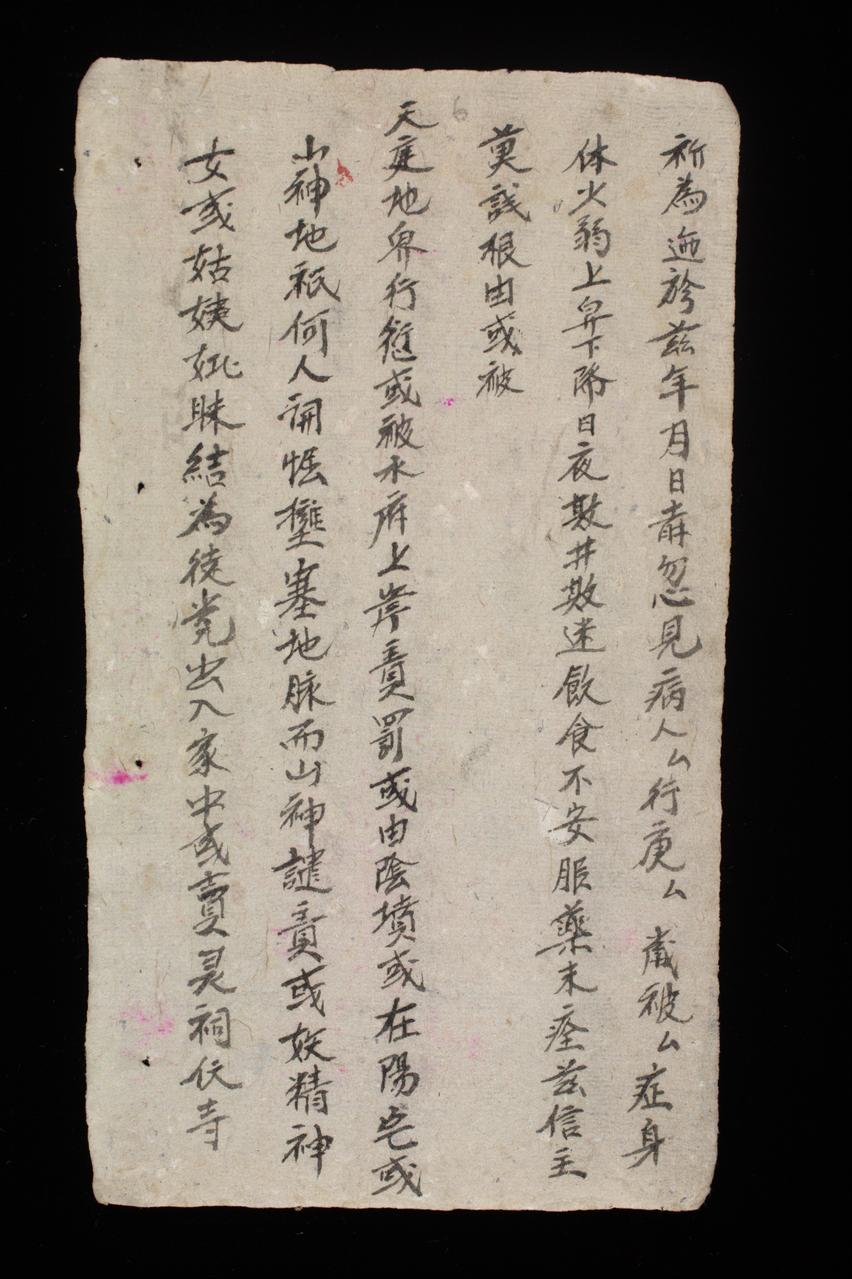 祈為迊於茲年月日寿忽見病人厶行庚厶歲被厶症身
体火弱上昇下降日夜欺井欺迷飲食不安服藥未痊茲信主
莫識根由或被
天庭地界行愆或被水府上岸責罰或由陰墳或在陽宅或
山神地祇何人開惺壅塞地脉而山神譴責或妖精神
女或姑姨妣昧結為徒党出入家中或賣灵祠伏寺